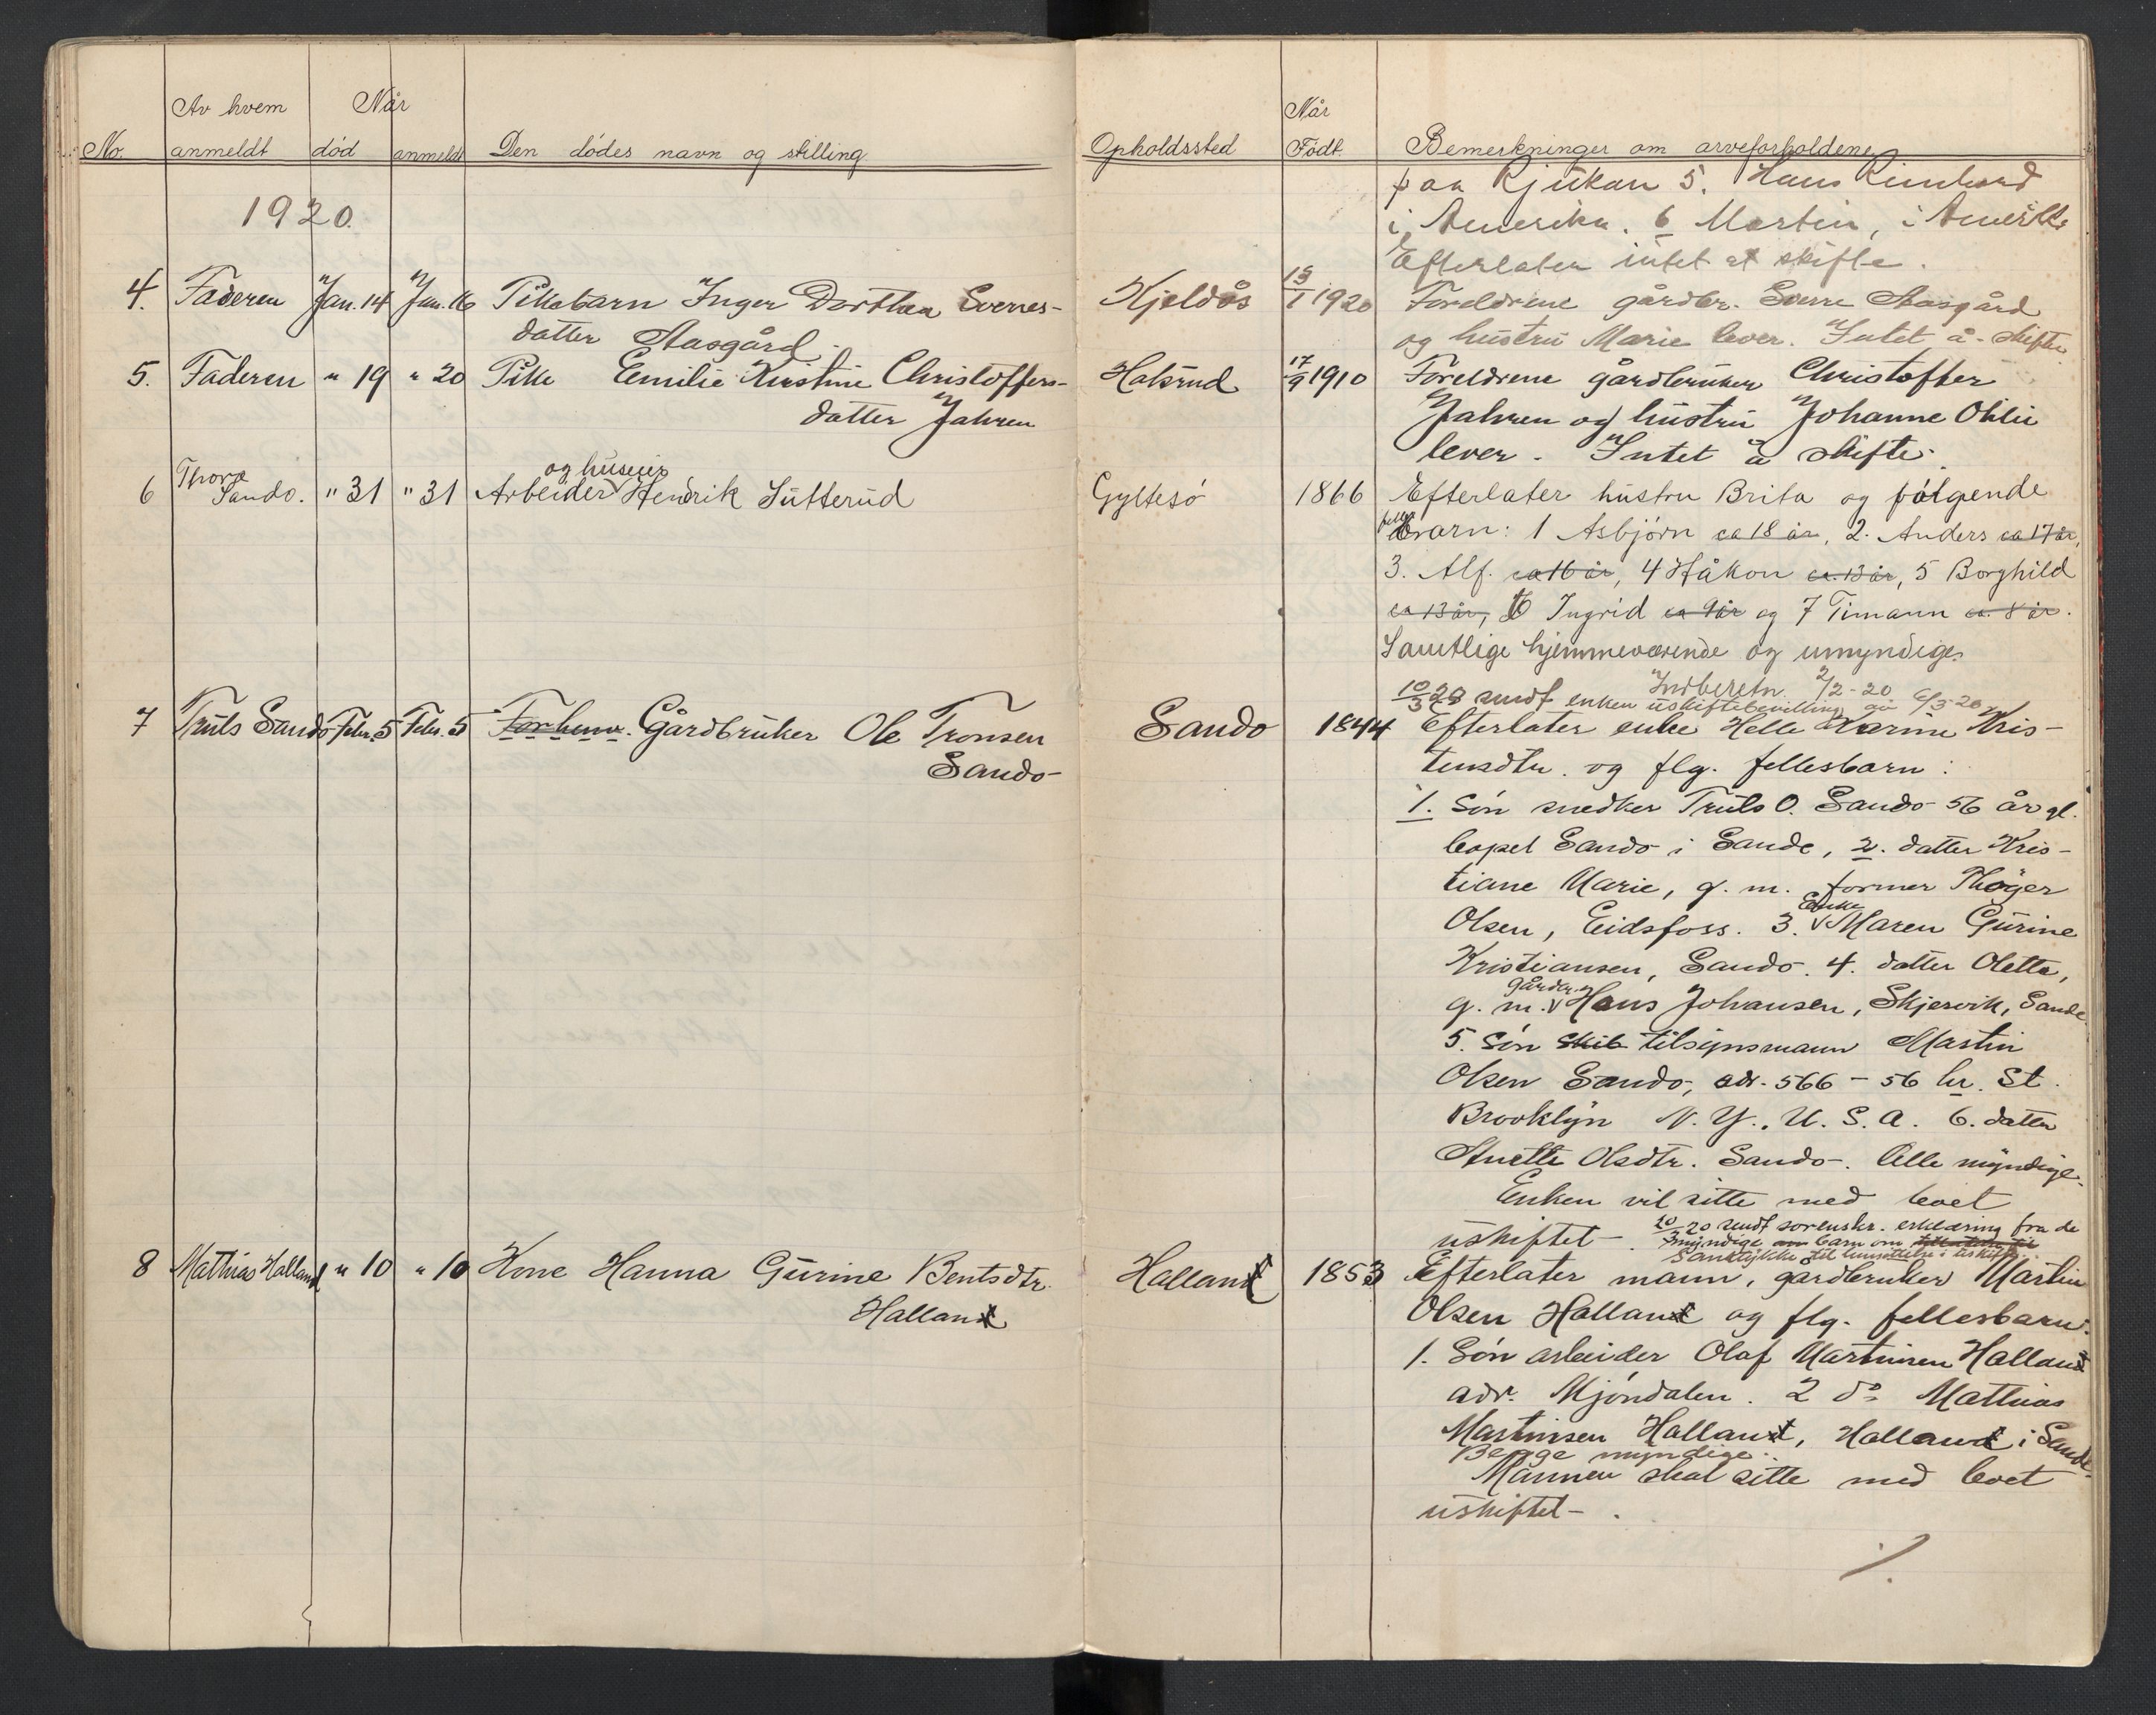 Av hvem Når
No. anmeldt død anmeldt Den dødes navn og stilling
1920.
4. Faderen Jan. 14 Jan. 16 Pikebarn Inger Dorthea Sverres-
datter Aasgård
5. Faderen " 19 " 20 Pike Emilie Kristine Christoffers-
datter Jahren
og huseier
6 Thora Sando. " 31 " 31 Arbeider Hendrik Sutterud
7 Truls Sando Febr. 5 Febr. 5 Forhenv. Gårdbruker Ole Tronsen
Sando
8 Mathias Halland " 10 " 10 Kone Hanna Gurine Bentsdtr.
Hallant
Når
Opholdssted Født. Bemerkninger om arveforholdene
paa Rjukan 5. Hans
i Amerika. 6 Martin, i Amerika
Efterlater intet at skifte.
Kjeldås 13/1 1920 Foreldrene gårdbr. Sverre Aasgård
og hustru Marie lever. Intet å skifte
Haksrud 17/9 1910 Foreldrene gårdbruker Christoffer
Jahren og hustru Johanne
lever. Intet å skifte.
Gyltesø 1866 Efterlater hustru Brita og følgende
felles barn: 1 Asbjørn ca 18 år, 2. Anders ca 17 år,
3. Alf. ca 16 år, 4 Håkon ca. 13 år, 5 Borghild
ca 13 år, 6 Ingrid ca 9 år og 7 Timann ca. 8 år.
Samtlige hjemmeværende og umyndige.
Indberetn. 2/2-20
10/3 20 sendt enken uskiftebevilling av 6/3-20
Sando 1844 Efterlater enke Helle Karine Kris-
tensdtr. og flg. fellesbarn:
1. Søn snedker Truls O. Sando 56 år gl.
bopel Sando i Sande, 2. datter Kris-
tiane Marie, g. m. former Thøger
Olsen, Eidsfoss. 3. Enke Maren Gurine
Kristiansen, Sando. 4. datter Olette,
g. m. gårdbr. Hans Johansen, Skjervik, Sande.
5. Søn skib tilsynsmann Martin
Olsen Sando, adr. 566 - 56 St.
Brooklyn N. Y., U. S. A. 6. datter
Anette Olsdtr. Sando. Alle myndige.
Enken vil sitte med boet
uskiftet. 10/3 20 sendt sorenskr. erklæring fra de
myndige barn om
samtykke til hensittelse i uskifte.
Hallant 1853 Efterlater mann, gårdbruker Martin
Olsen Hallant og flg. fellesbarn:
1. Søn arbeider Olaf Martinsen Hallant
adr. Mjøndalen. 2 do Mathias
Martinsen Hallant, Hallant i Sande.
Begge myndige.
Mannen skal sitte med boet
uskiftet.
./.